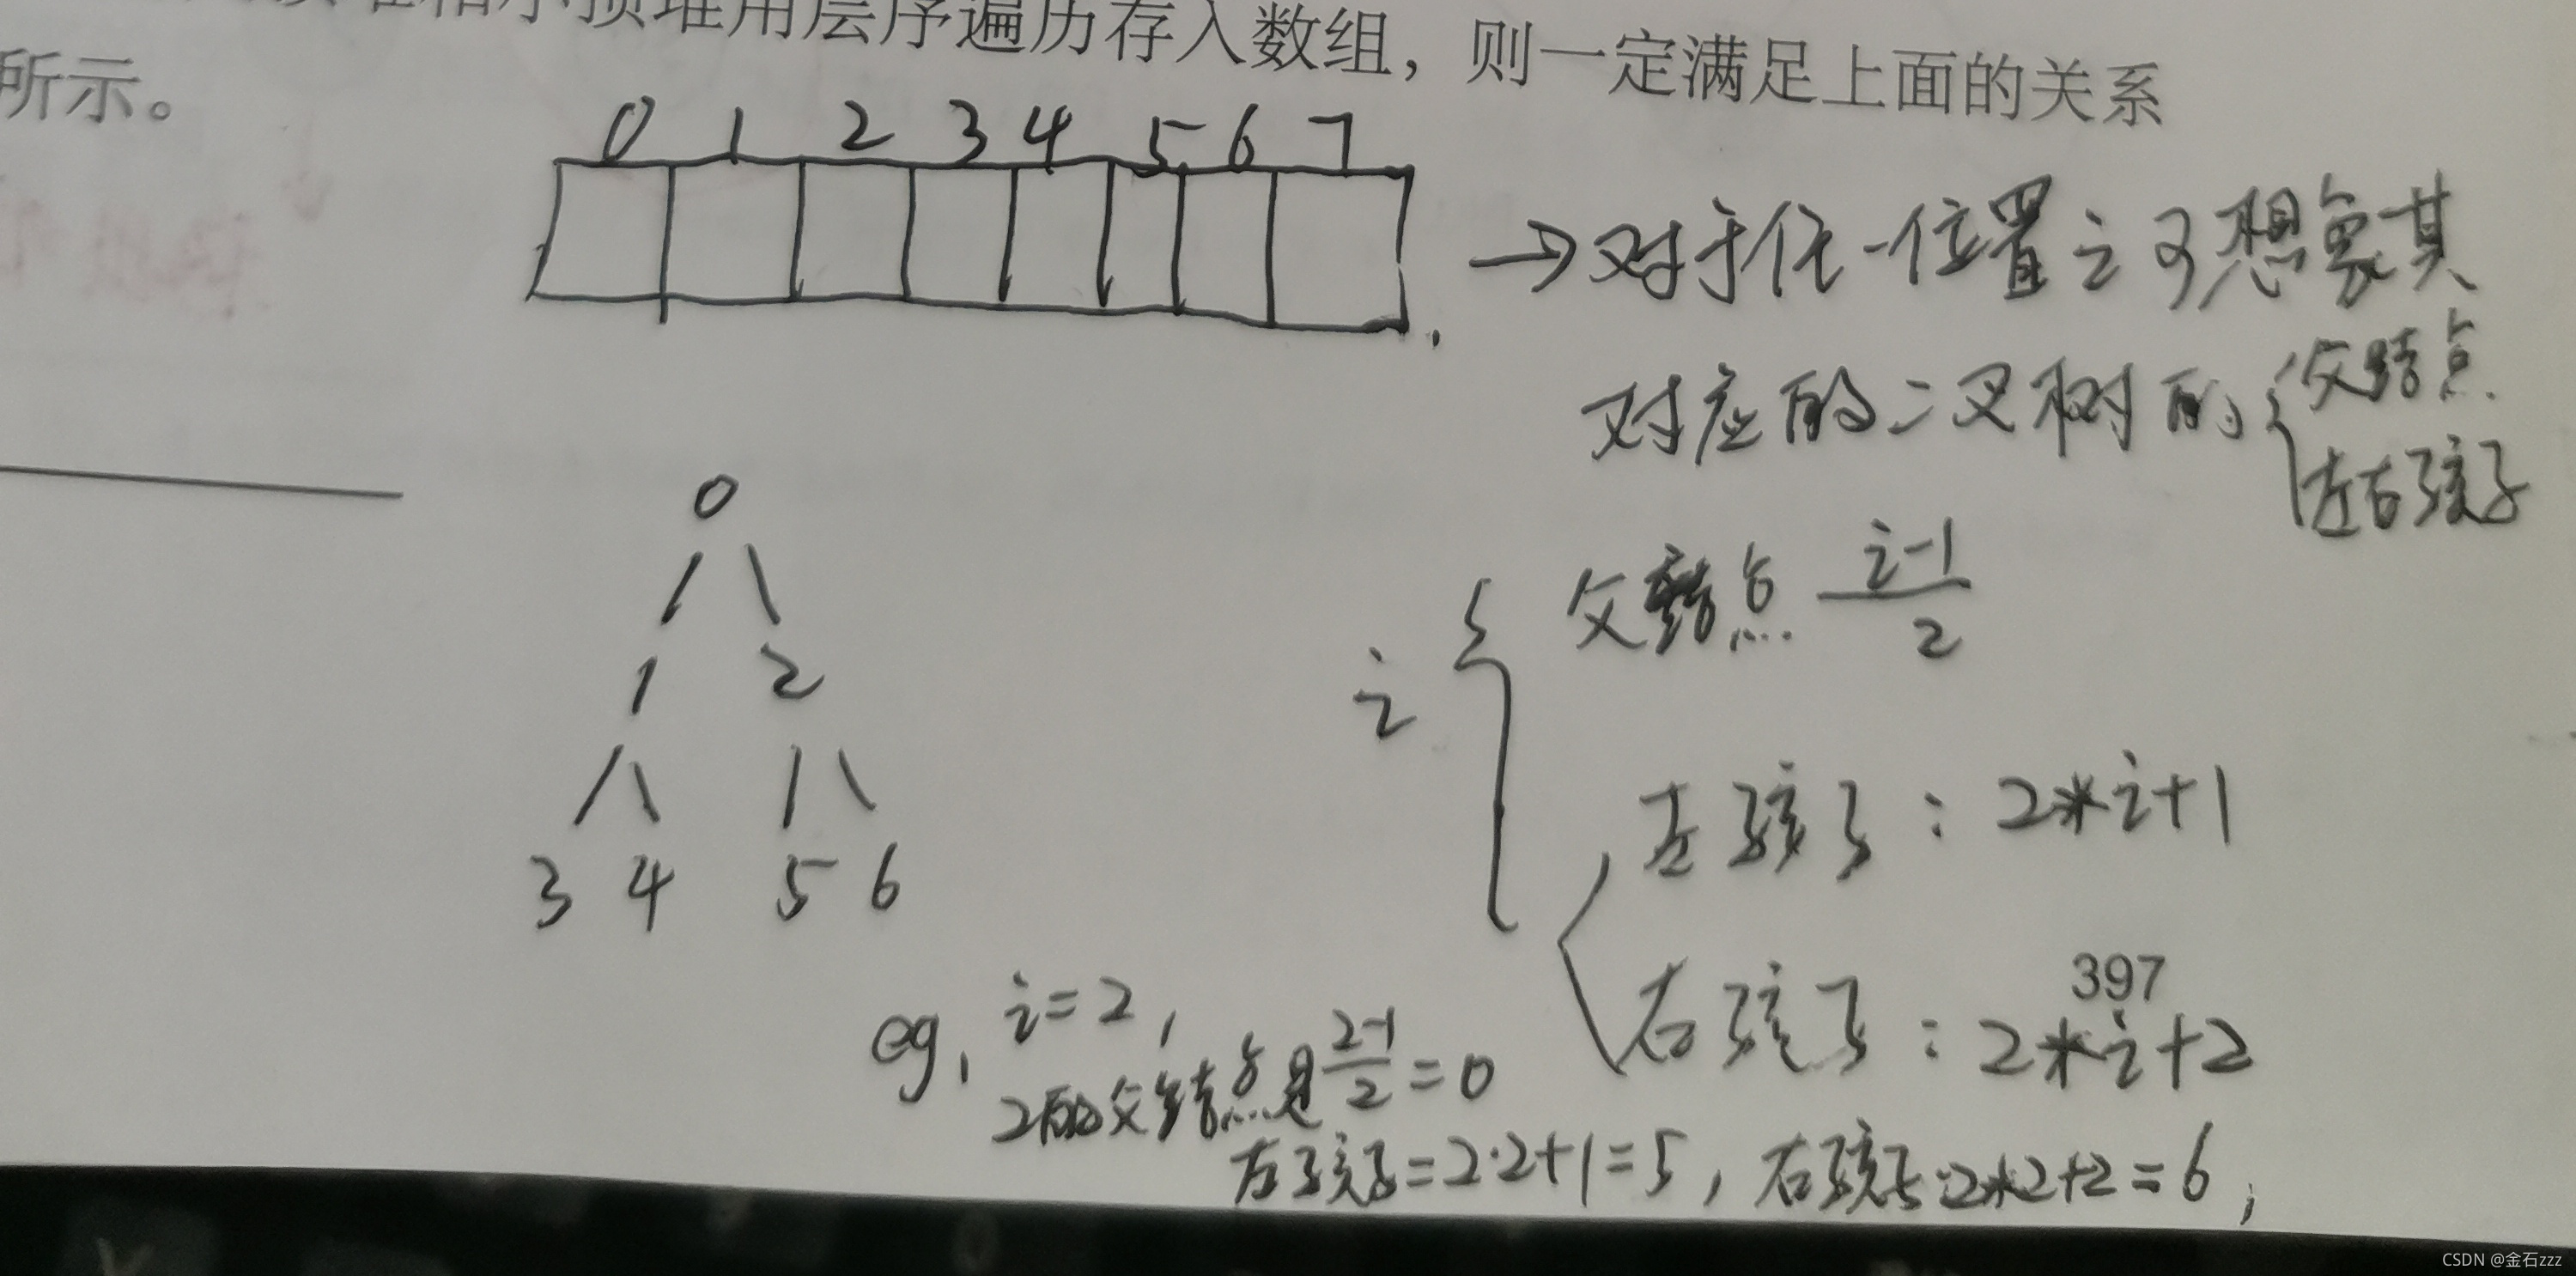 小顶堆用层序遍历存入数组，则一定满足上面的关系
所示。
0 1 2 3 4 5 6 7
→对于任一位置i可想象其
对应的二叉树的{父结点
左右孩子
0
1 2
3 4 5 6
i
父结点 i-1/2
左孩子：2*i+1
右孩子：2*i+2
397
eg, i=2,
2的父结点是2-1/2=0
左孩子=2·2+1=5，右孩子:2*2+2=6;
CSDN @金石zzz